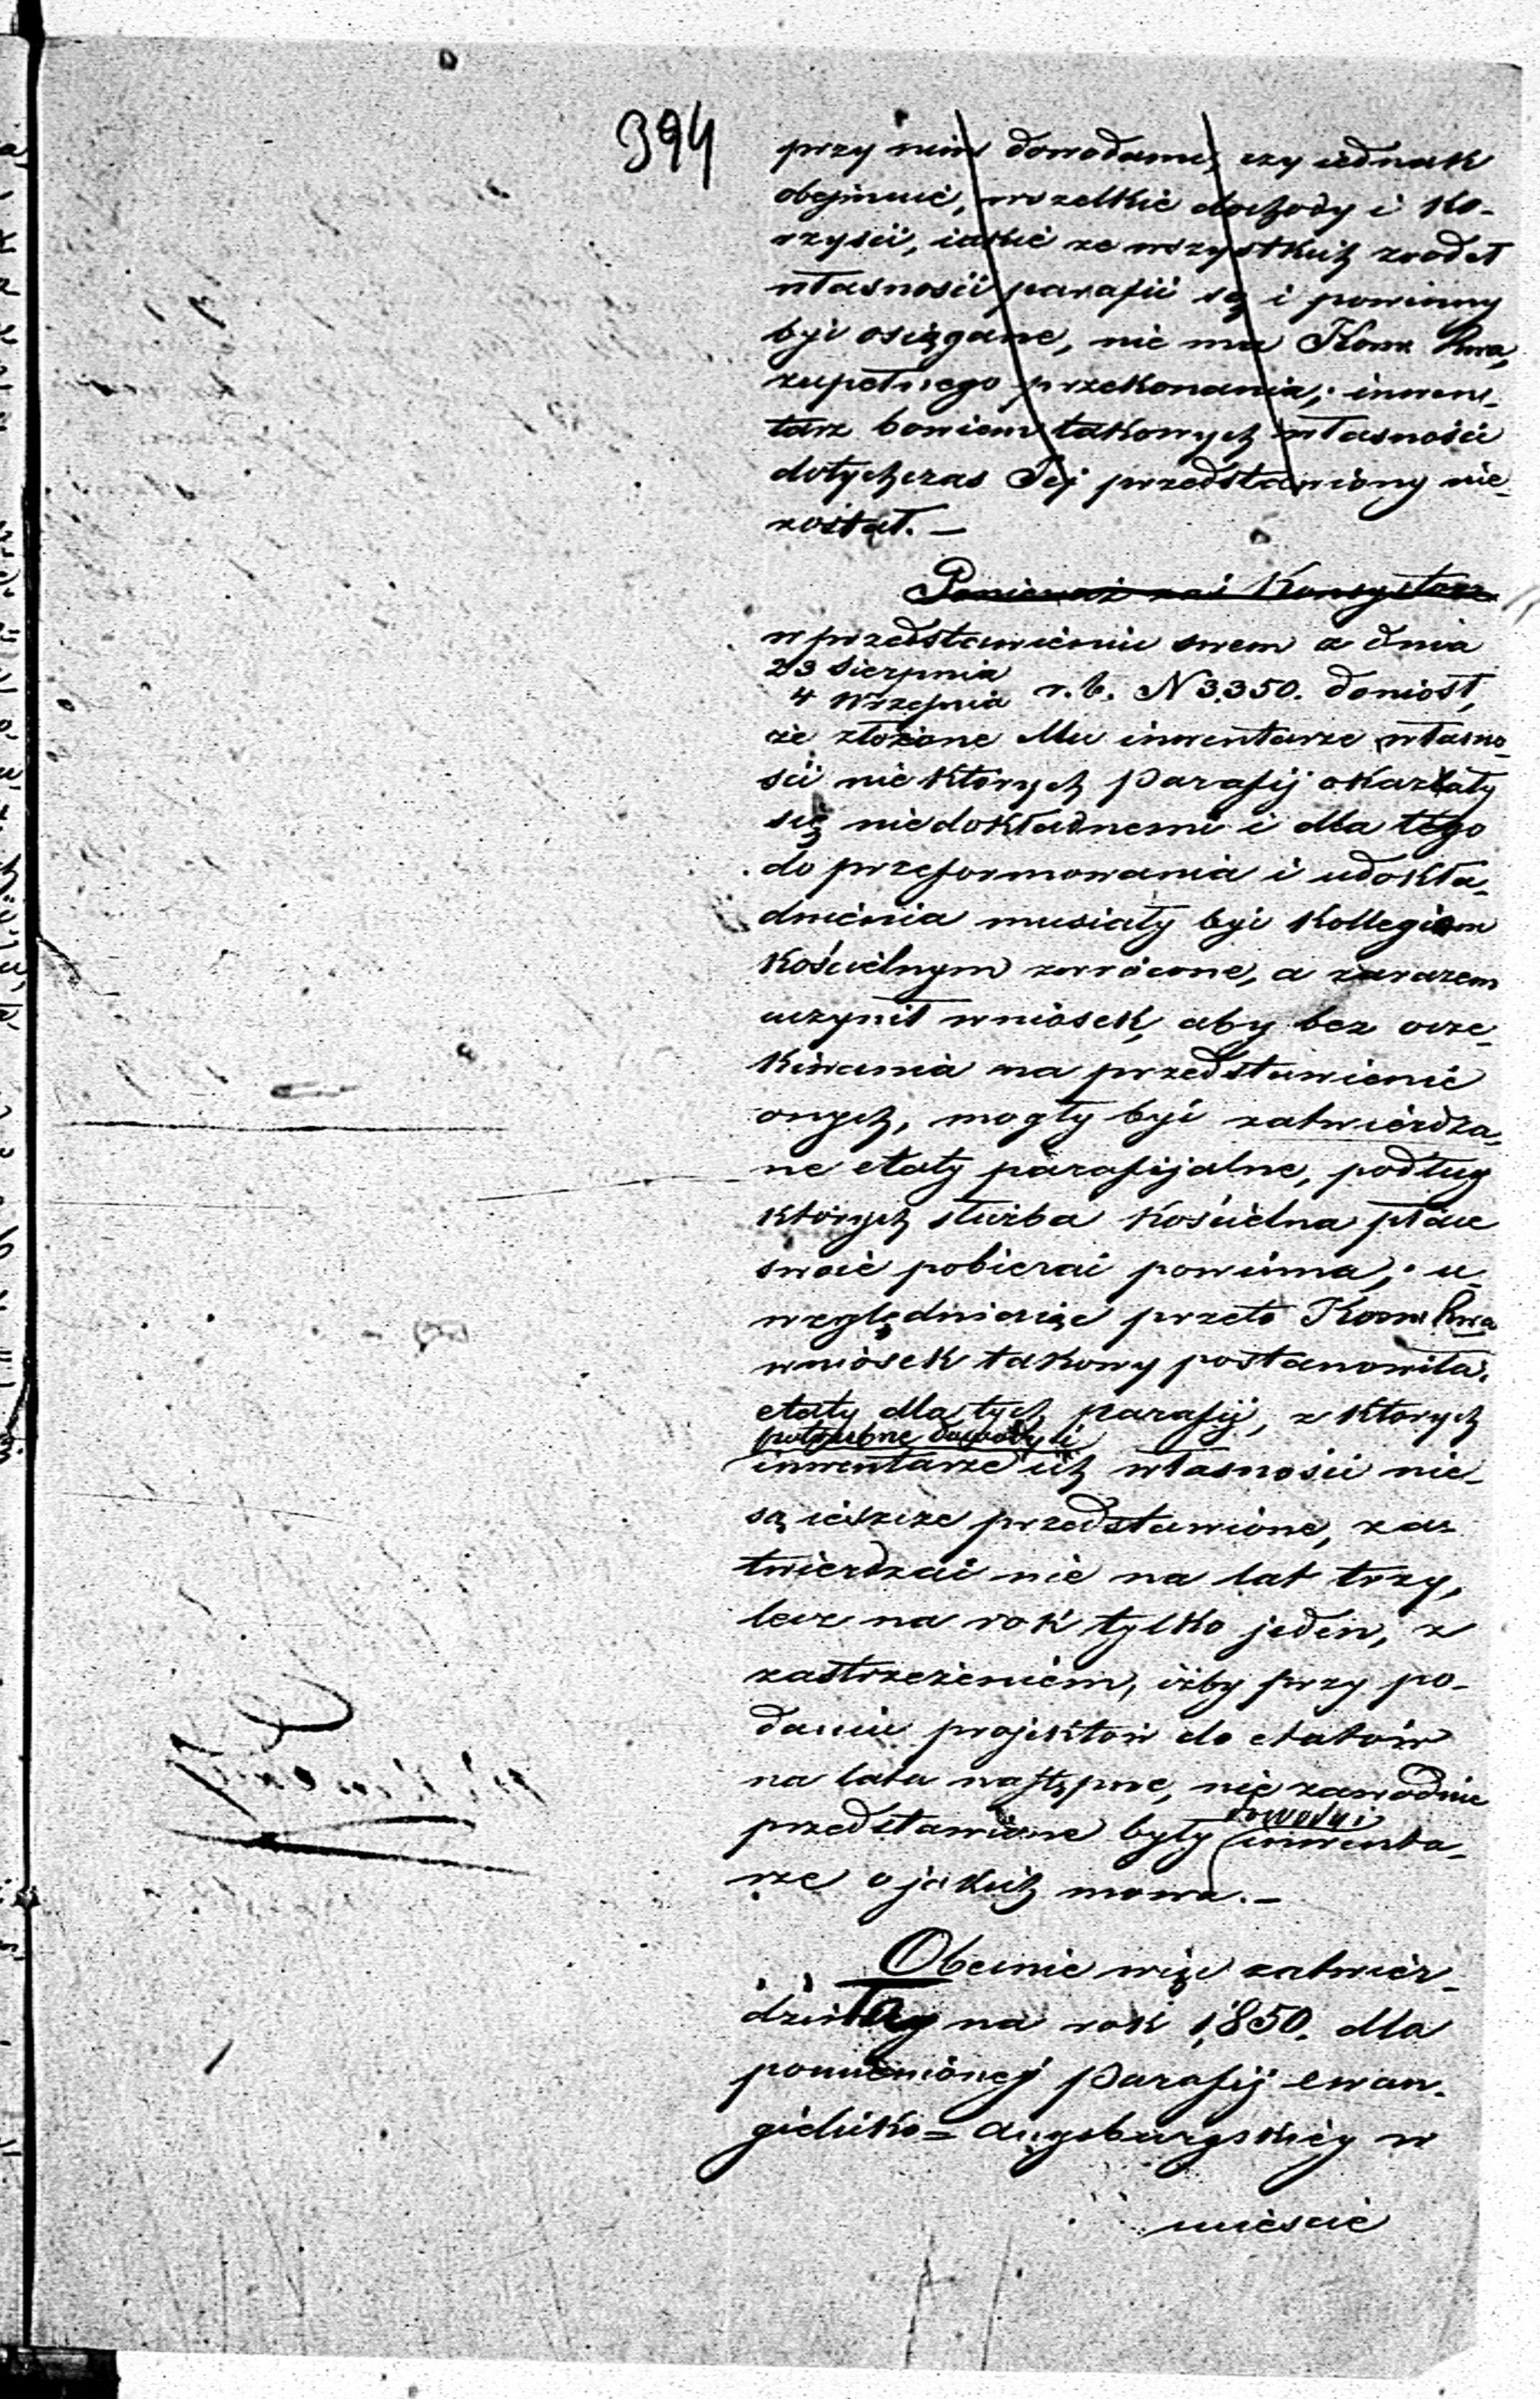 394
przy nim dowodami, czy iednak
obejmuie, wszelkie dochody i ko-
rzyści, iakie ze wszystkich zrodeł
własności parafii są i powinny
być osiągane, nie ma Kom: Rwa,
zupełnego przekonania; inwen-
tarz bowiem takowych własności
dotychczas Jej przedstawiony nie
został. —
Ponieważ zaś Konsystorz
w przedstawieniu swem z dnia
23 Sierpnia
4 Września r. b. N 3,350. doniosł,
że złożone Mu inwentarze własno-
ści niektórych Parafij okazały
się niedokładnemi i dla tego
do przeformowania i udokła-
dnienia musiały być Kollegiom
Kościelnym zwrócone, a zarazem
uczynił wniosek, aby bez ocze-
kiwania na przedstawienie
onych, mogły być zatwierdza-
ne etaty parafijalne, podług
których służba Kościelna płace
swoie pobierać powinna; u-
względniaiąc przeto Kom: Rwa
wniosek takowy postanowiła,
etaty dla tych Parafij, z których
potrzebne dowody i
inwentarze ich własności nie-
są ieszcze przedstawione, za-
twierdzać nie na lat trzy,
lecz na rok tylko jeden, z
zastrzeżeniem, iżby przy po-
daniu projektów do etatów
na lata następne, niezawodnie
dowody i
przedstawione były inwenta-
rze o jakich mowa. —
Obecnie więc zatwier-
dziwszy na rok 1850. dla
pomienionej Parafij ewan-
gielicko = Augsburgskiey w
mieście